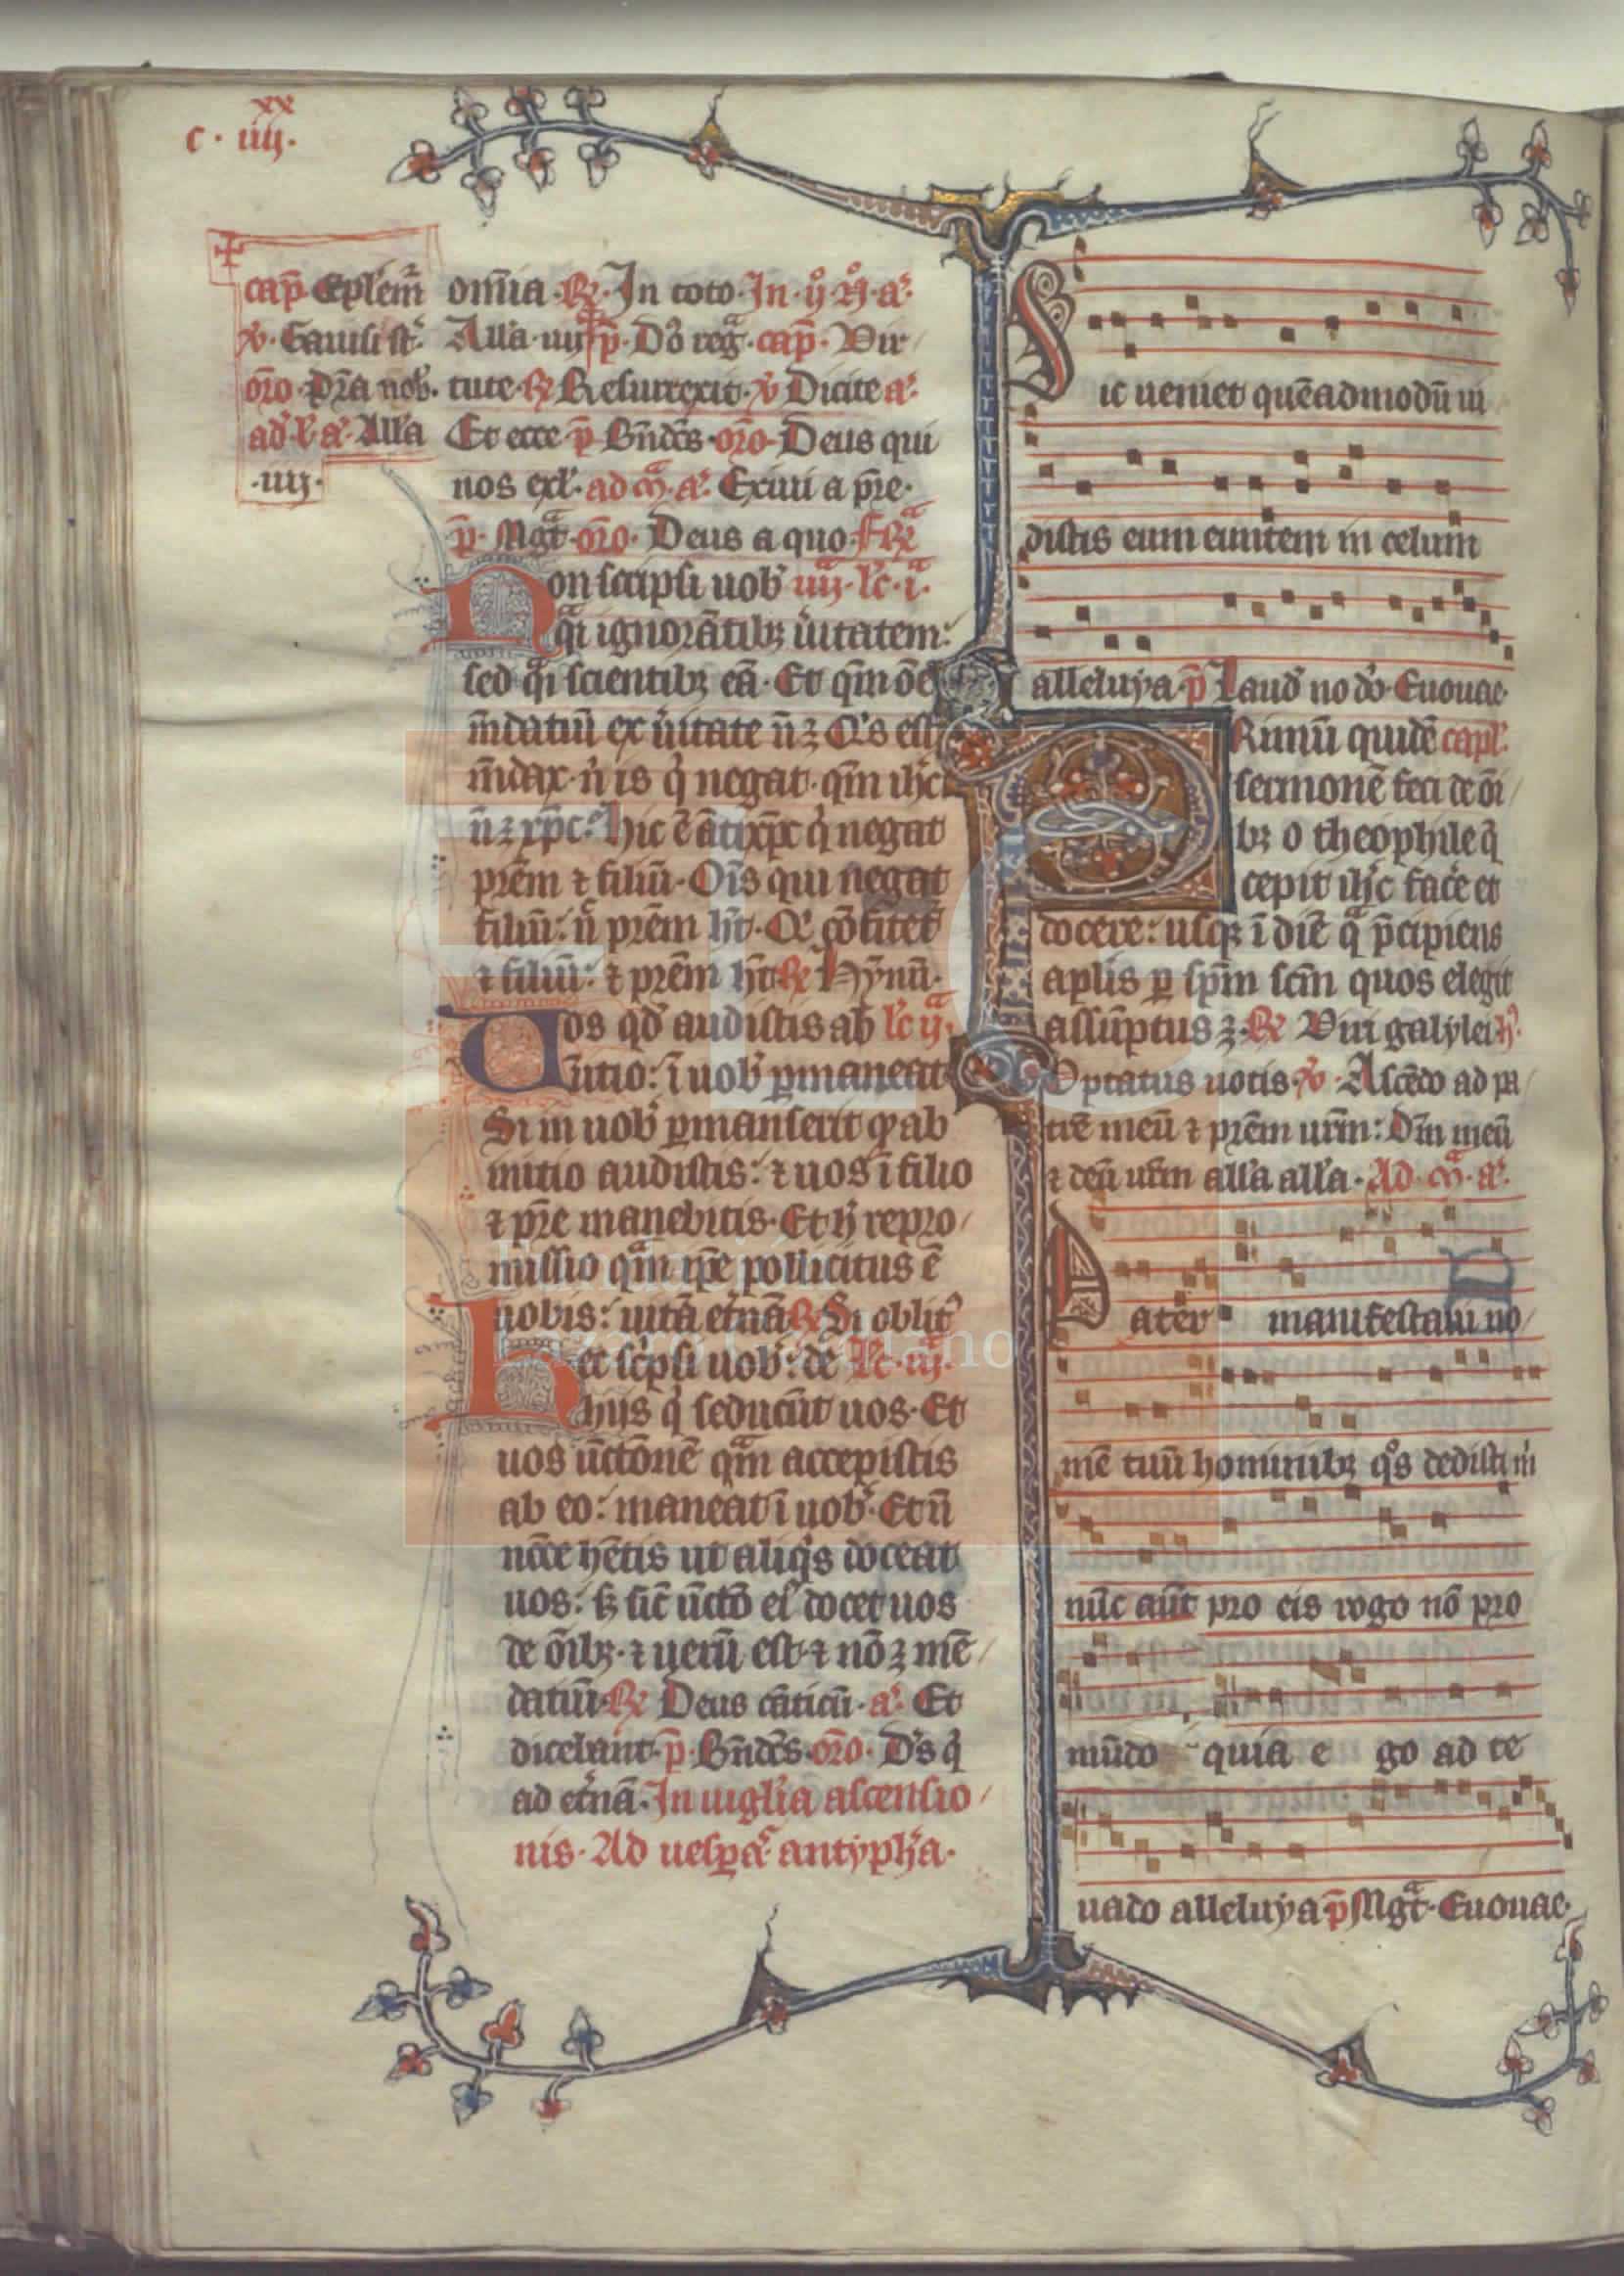 c · iiij^xx.
cap̄. Eplēm̄
℣. Gauisi st̄.
or̄o. Dr̄a nob̄.
ad l̄. a̅. All̄a
.iiij.
om̄ia. ℟. In toto. In. ij̊. N̊. a̅.
All̄a. iiij. p̄. Do̅ reg̅. cap̄. Vir
tute. ℟ Resurrexit. ℣ Dicite a̅.
Et ecce p̄ Bn̄dc̄s. or̄o. Deus qui
nos exl̄. ad m̄. a̅. Exiui a pr̄e.
p̄. Mgt̄. or̄o. Deus a quo. fr̄a
Non scripsi uob̄ iiij^a. lc̄. i^a.
q̄i ignorātib; ūitatem:
sed q̄i scientib; eā. Et qm̄ oē
m̄datiū ex ūitate n̄ ꝫ Q's est
m̄dax. n̄ is q̇ negat. qm̄ ihc̄
n̄ ꝫ xp̄c: hic ē ātixp̄c q̇ negat
prēm ⁊ filiū. Oīs qui negat
filiū: n̄ prēm ht̄. Q' cōfitet̄
⁊ filiū: ⁊ prēm ht̄ ℟ Hȳnū.
Uos qd̄ audistis ab lc̄ ij^a.
īitio: ī uob̄ ꝑmaneat
Si in uob̄ ꝑmanserit qꝺ ab
initio audistis: ⁊ uos ī filio
⁊ pr̄e manebitis. Et h̄ repro
missio qm̄ ip̄e pollicitus ē
uobis: uitā et̄nā ℟ Si oblit᷒
Hec sc̄psi uob̄: de lc̄. iij^a.
hijs q̇ seducūt uos. Et
uos ūctōnē qm̄ accepistis
ab eo: maneat ī uob̄. Et n̄
nc̄ce hētis ut aliq̇s doceat
uos: sꝫ sic̄ ūctō ei᷒ docet uos
de ōib;. ⁊ uerū est. ⁊ nō ꝫ mē
datiū. ℟ Deus cāticū. a̅. Et
dicebant. p̄. Bn̄dc̄s. or̄o. Ds̄ q̇
ad et̄nā. In uigl̄ia ascensio
nis. Ad uesꝑa̅ antyph̄a.
Sic ueniet quēadmodū ui
distis eum euntem in celum
alleluya. p̄ Laud̄ no do̅. Euouae.
PRimū quidē capl̄.
sermonē feci de ōi
b; o theophile q̄
cepit ihc̄ face᷒ et
docere: usqꝫ ī diē q̄ p̄cipiens
aplīs ꝑ spm̄ scm̄ quos elegit
assūptus ꝫ. ℟ Viri galylei h̄.
Optatus uotis. ℣. Ascēdo ad pa
trē meū ⁊ prēm ur̄m: Dm̄ meū
⁊ deū ur̄m all̄a all̄a. Ad. m̄. a̅.
Pater manifestaui no
mē tuū hominib; q̊s dedisti m̄
nūc aūt pro eis rogo nō pro
mūdo quia e go ad te
uado alleluya p̄ Mgt̄. Euouae.